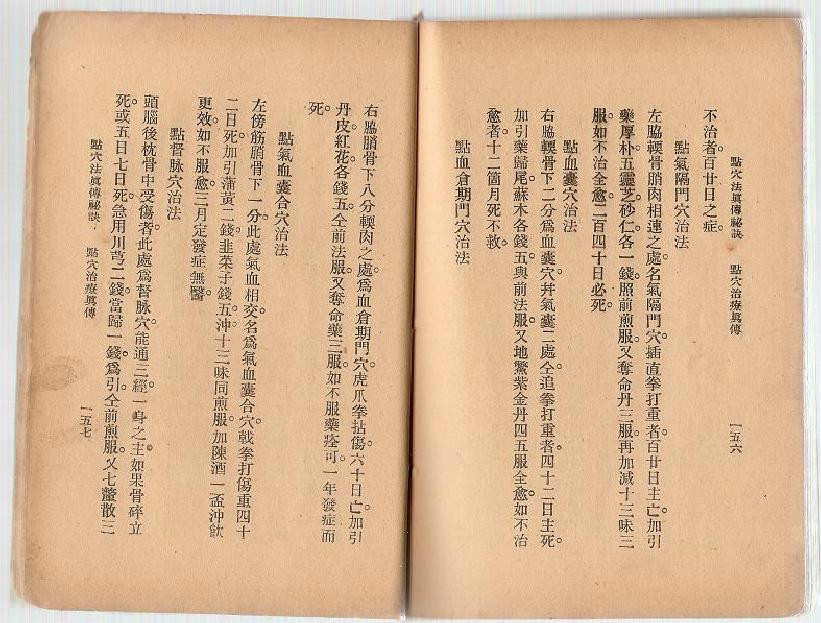 點穴法眞傳祕訣　點穴治療眞傳　一五六
不治者。百廿日之症。
點氣隔門穴治法
左脇輭骨腁肉相連之處。名氣隔門穴。插直拳打重者。百廿日主亡。加引
藥厚朴。五靈芝。砂仁。各一錢。照前煎服。又奪命丹三服。再加減十三味三
服。如不治全愈。二百四十日必死。
點血囊穴治法
右脇輭骨下二分。爲血囊穴。並氣囊二處。仝追拳打重者。四十二日主死。
加引藥歸尾。蘇木。各錢五。與前法服。又地鱉紫金丹四五服。全愈。如不治
愈者。十二箇月死。不救。
點血倉期門穴治法
右脇腁骨下八分。輭肉之處。爲血倉期門穴。虎爪拳拈傷。六十日亡。加引
丹皮。紅花。各錢五。仝前法服。又奪命藥三服。如不服藥痊可。一年發症而
死。
點氣血囊合穴治法
左傍筋腁骨下一分。此處氣血相交。名爲氣血囊合穴。戟拳打傷重。四十
二日死。加引蒲黃二錢。韭菜子錢五。沖十三味同煎服。加陳酒一盃沖飮
更效。如不服愈。三月定發症無醫。
點督脉穴治法
頭腦後枕骨中受傷者。此處爲督脉穴。能通三經。一身之主。如果骨碎立
死。或五日七日死。急用川芎二錢。當歸一錢。爲引。仝前煎服。又七釐散三
點穴法眞傳祕訣　點穴治療眞傳　一五七